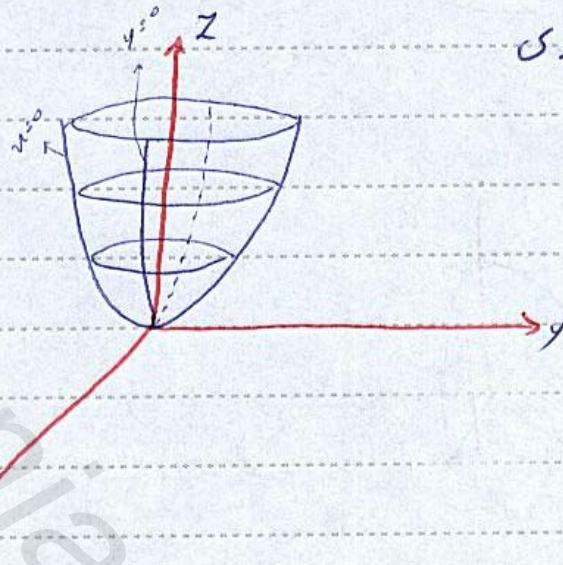 y=0
Z
S.
x=0
y